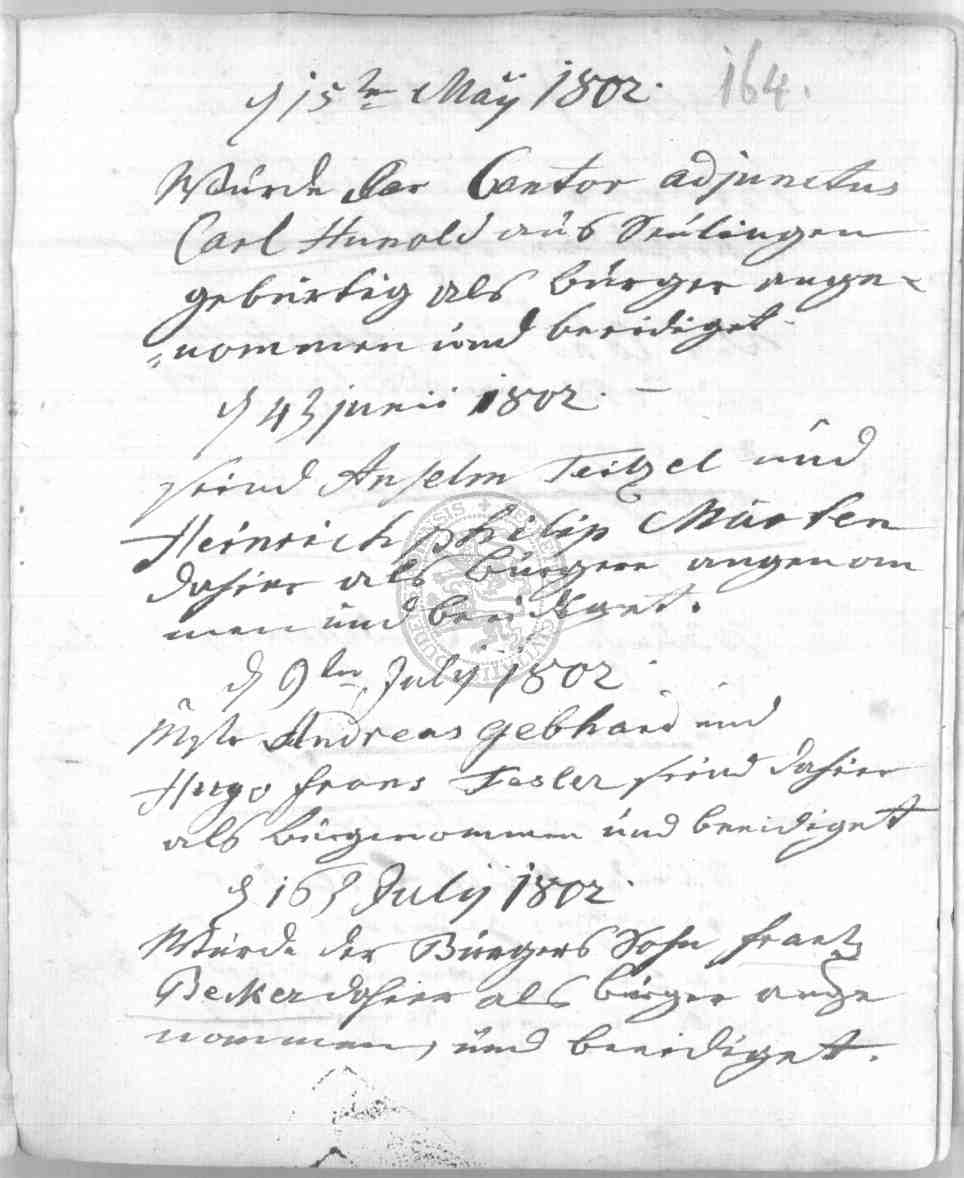 164.
d 15ten Maÿ 1802.
Wurde der Cantor adjunctus
Carl Hunold aus Seulingen
gebürtig als bürger ange-
nommen und beeidiget
d 4t junii 1802
seind Anselm Teitzel und
Heinrich philip Marten
dahier als bürgere angenom
men und beeidiget.
d 9ten Julÿ 1802
Mstr Andreas gebhard und
Hugo frans Tesler seind dahier
als bürgenommen und beeidiget
d 16t Julÿ 1802
Wurde der Bürgers Sohn frantz
Becker dahier als bürger ange
nommen, und beeidiget.